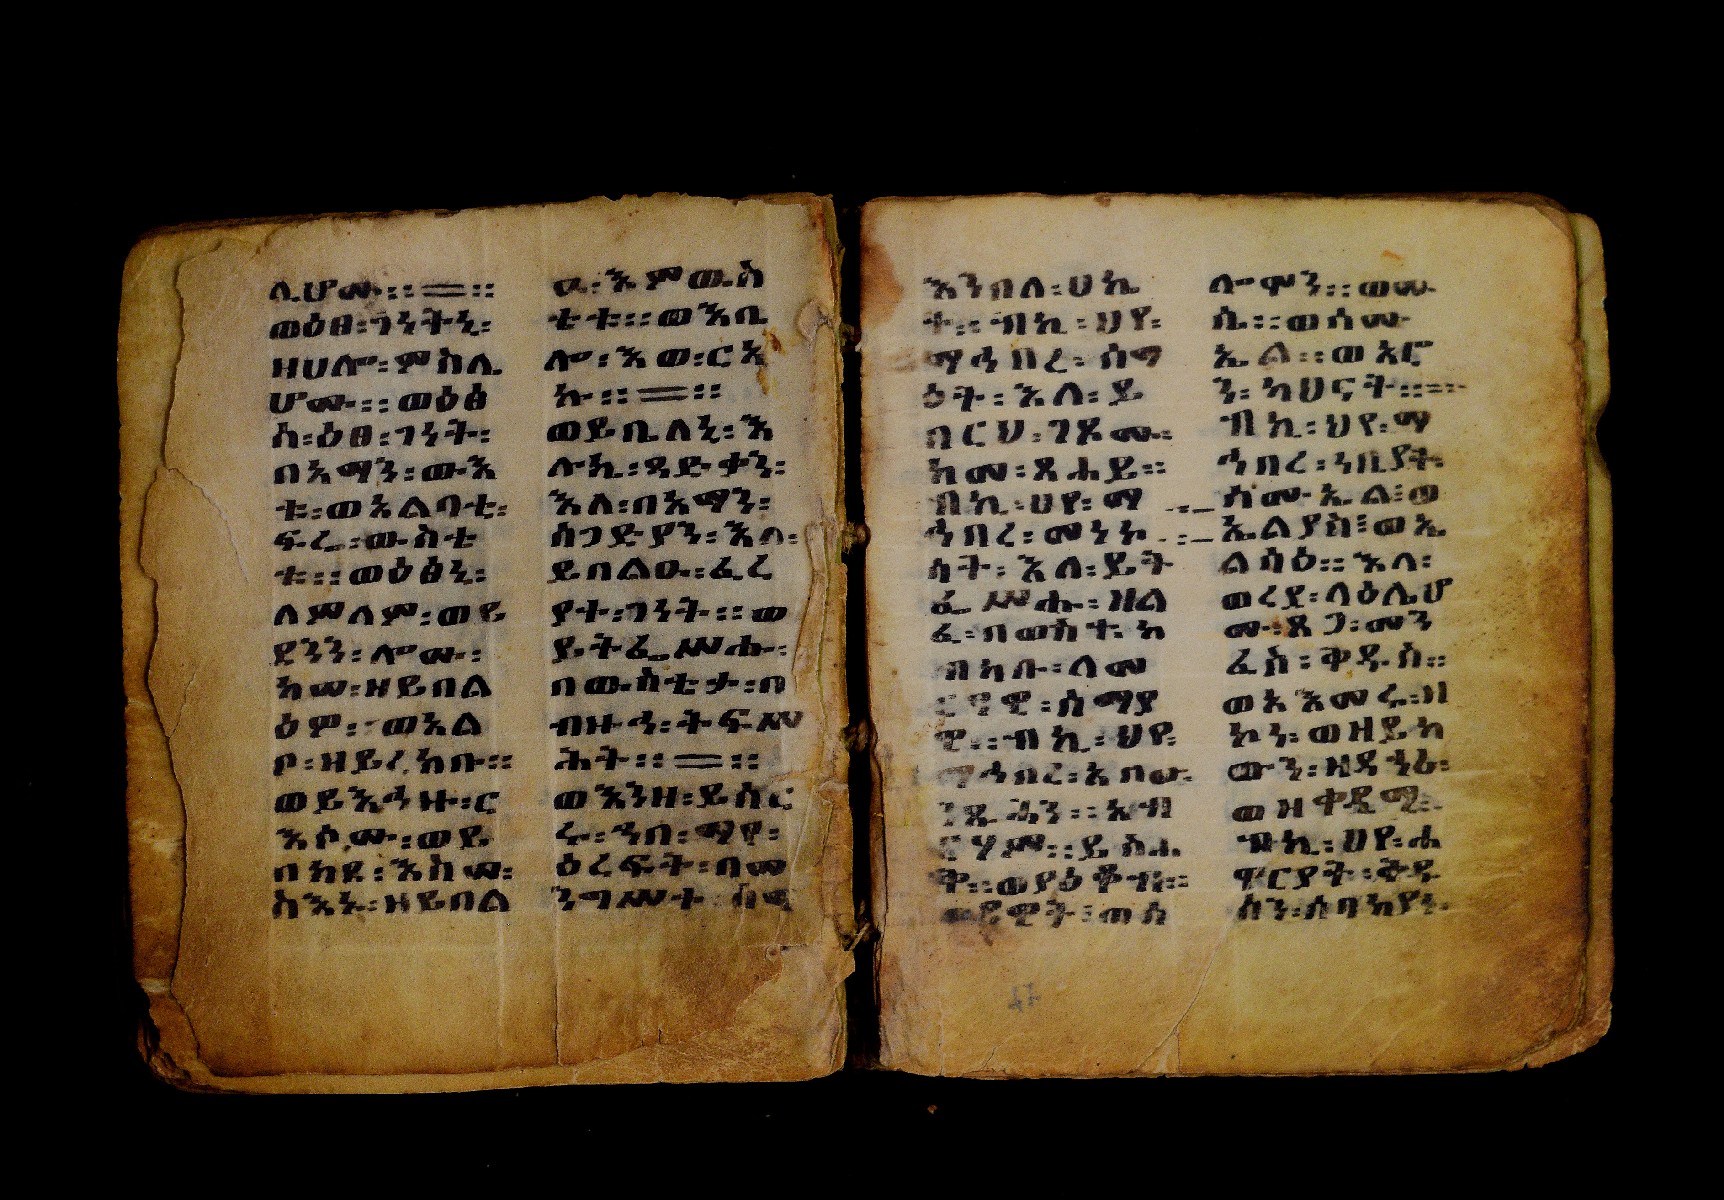 ሊሆሙ፡፡==፡፡
ወዕፀ፡ገነትኒ፡
ዘሀሎ፡ምስሊ
ሆሙ፡፡ወዕፅ
ስ፡ዕፀ፡ገነት፡
በአማን፡ውእ
ቱ፡ወአልባቲ፡
ፍሬ፡ውስቴ
ቱ፡፡ወዕፅኒ፡
ለምለም፡ወይ
ደንን፡ሎሙ፡
ከመ፡ዘይበል
ዕም፡፡ወአል
ቦ፡ዘይረክቡ፡፡
ወይእኅዙ፡ር
እሶሙ፡ወይ
በክዩ፡እስመ፡
ስእኑ፡ዘይበል
ዑ፡እምውስ
ቴቱ፡፡ወእቤ
ሎ፡እወ፡ርኢ
ኩ፡፡==፡፡
ወይቤለኒ፡እ
ሉኪ፡ዳድቃን፡
እለ፡በአማን፡
ስጋድያን፡እለ፡
ይበልዑ፡ፈረ
ያተ፡ገነት፡፡ወ
ይትፌሥሑ፡
በውስቴታ፡በ
ብዙኅ፡ትፍሥ
ሕት፡፡==፡፡
ወእንዘ፡ይስር
ሩ፡ኀበ፡ማየ፡
ዕረፍት፡በመ
ንግሥተ
እንበለ፡ሀኬ
ት፡፡ብኪ፡ህየ፡
ማኅበረ፡ሰማ
ዕት፡እለ፡ይ
በርህ፡ገጾሙ፡
ከመ፡ጸሐይ፡፡
ብኪ፡ህየ፡ማ
ኅበረ፡መነኮ
ሳት፡እለ፡ይት
ፌሥሑ፡ዘል
ፈ፡በወስተ፡ከ
ብካቡ፡ለመ
ርዓዊ፡ሰማያ
ዊ፡፡ብኪ፡ህየ፡
ማኅበረ፡አበው፡
ንጹሓን፡፡አብ
ርሃም፡፡ይስሐ
ቅ፡፡ወያዕቆብ፡፡
ወዳዊት፡ወሰ
ሎሞን፡፡ወሙ
ሴ፡፡ወሳሙ
ኤል፡፡ወአሮ
ን፡ካህናት፡፡=፡፡
ብኪ፡ህየ፡ማ
ኅበረ፡ነቢያት፡
ሳሙኤል፡ወ
ኤልያስ፡ወኤ
ልሳዕ፡፡እለ፡
ወረደ፡ላዕሌሆ
ሙ፡ጸጋ፡መን
ፈስ፡ቅዱስ፡፡
ወአእመሩ፡ዘ
ኮነ፡ወዘይከ
ውን፡ዘዳኅሪ፡
ወዘቀዳሚ፡
ብኪ፡ህየ፡ሐ
ዋርያት፡ቅዱ
ሳን፡ሰባክያነ፡